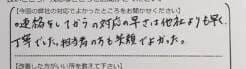 【今回の弊社の対応でよかったところをお聞かせください】
○連絡をしてからの対応の早さは他社よりも早く、
丁寧でした。担当者の方も笑顔でよかった。
【改善した方がいい所を教えて下さい】